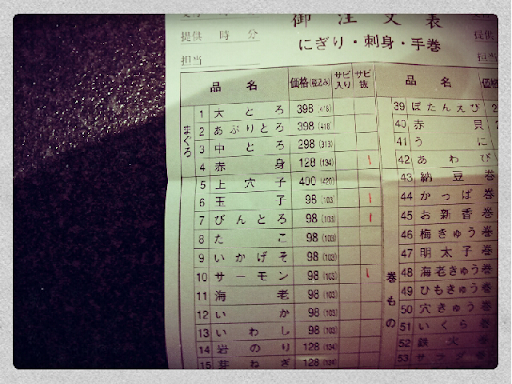 御注文表
提供時分
にぎり・刺身・手巻
担当
品名 価格(税込み) サビ入り サビ抜 品名 価格
まぐろ
1 大とろ 398
2 あぶりとろ 398 (418)
3 中とろ 298 (313)
4 赤身 128 (134) 1
5 上穴子 400 (420)
6 玉子 98 (103) 1
7 びんとろ 98 (103) 1
8 たこ 98 (103)
9 いかげそ 98 (103)
10 サーモン 98 (103) 1
11 海老 98 (103)
12 いか 98 (103)
13 いわし 98 (103)
14 岩のり 128 (134)
15 芽ねぎ 128 (134)
39 ぼたんえび
40 赤貝
41 うに
42 あわび
巻もの
43 納豆巻
44 かっぱ巻
45 お新香巻
46 梅きゅう巻
47 明太子巻
48 海老きゅう巻
49 ひもきゅう巻
50 穴きゅう巻
51 いくら巻
52 鉄火巻
53 サラダ巻